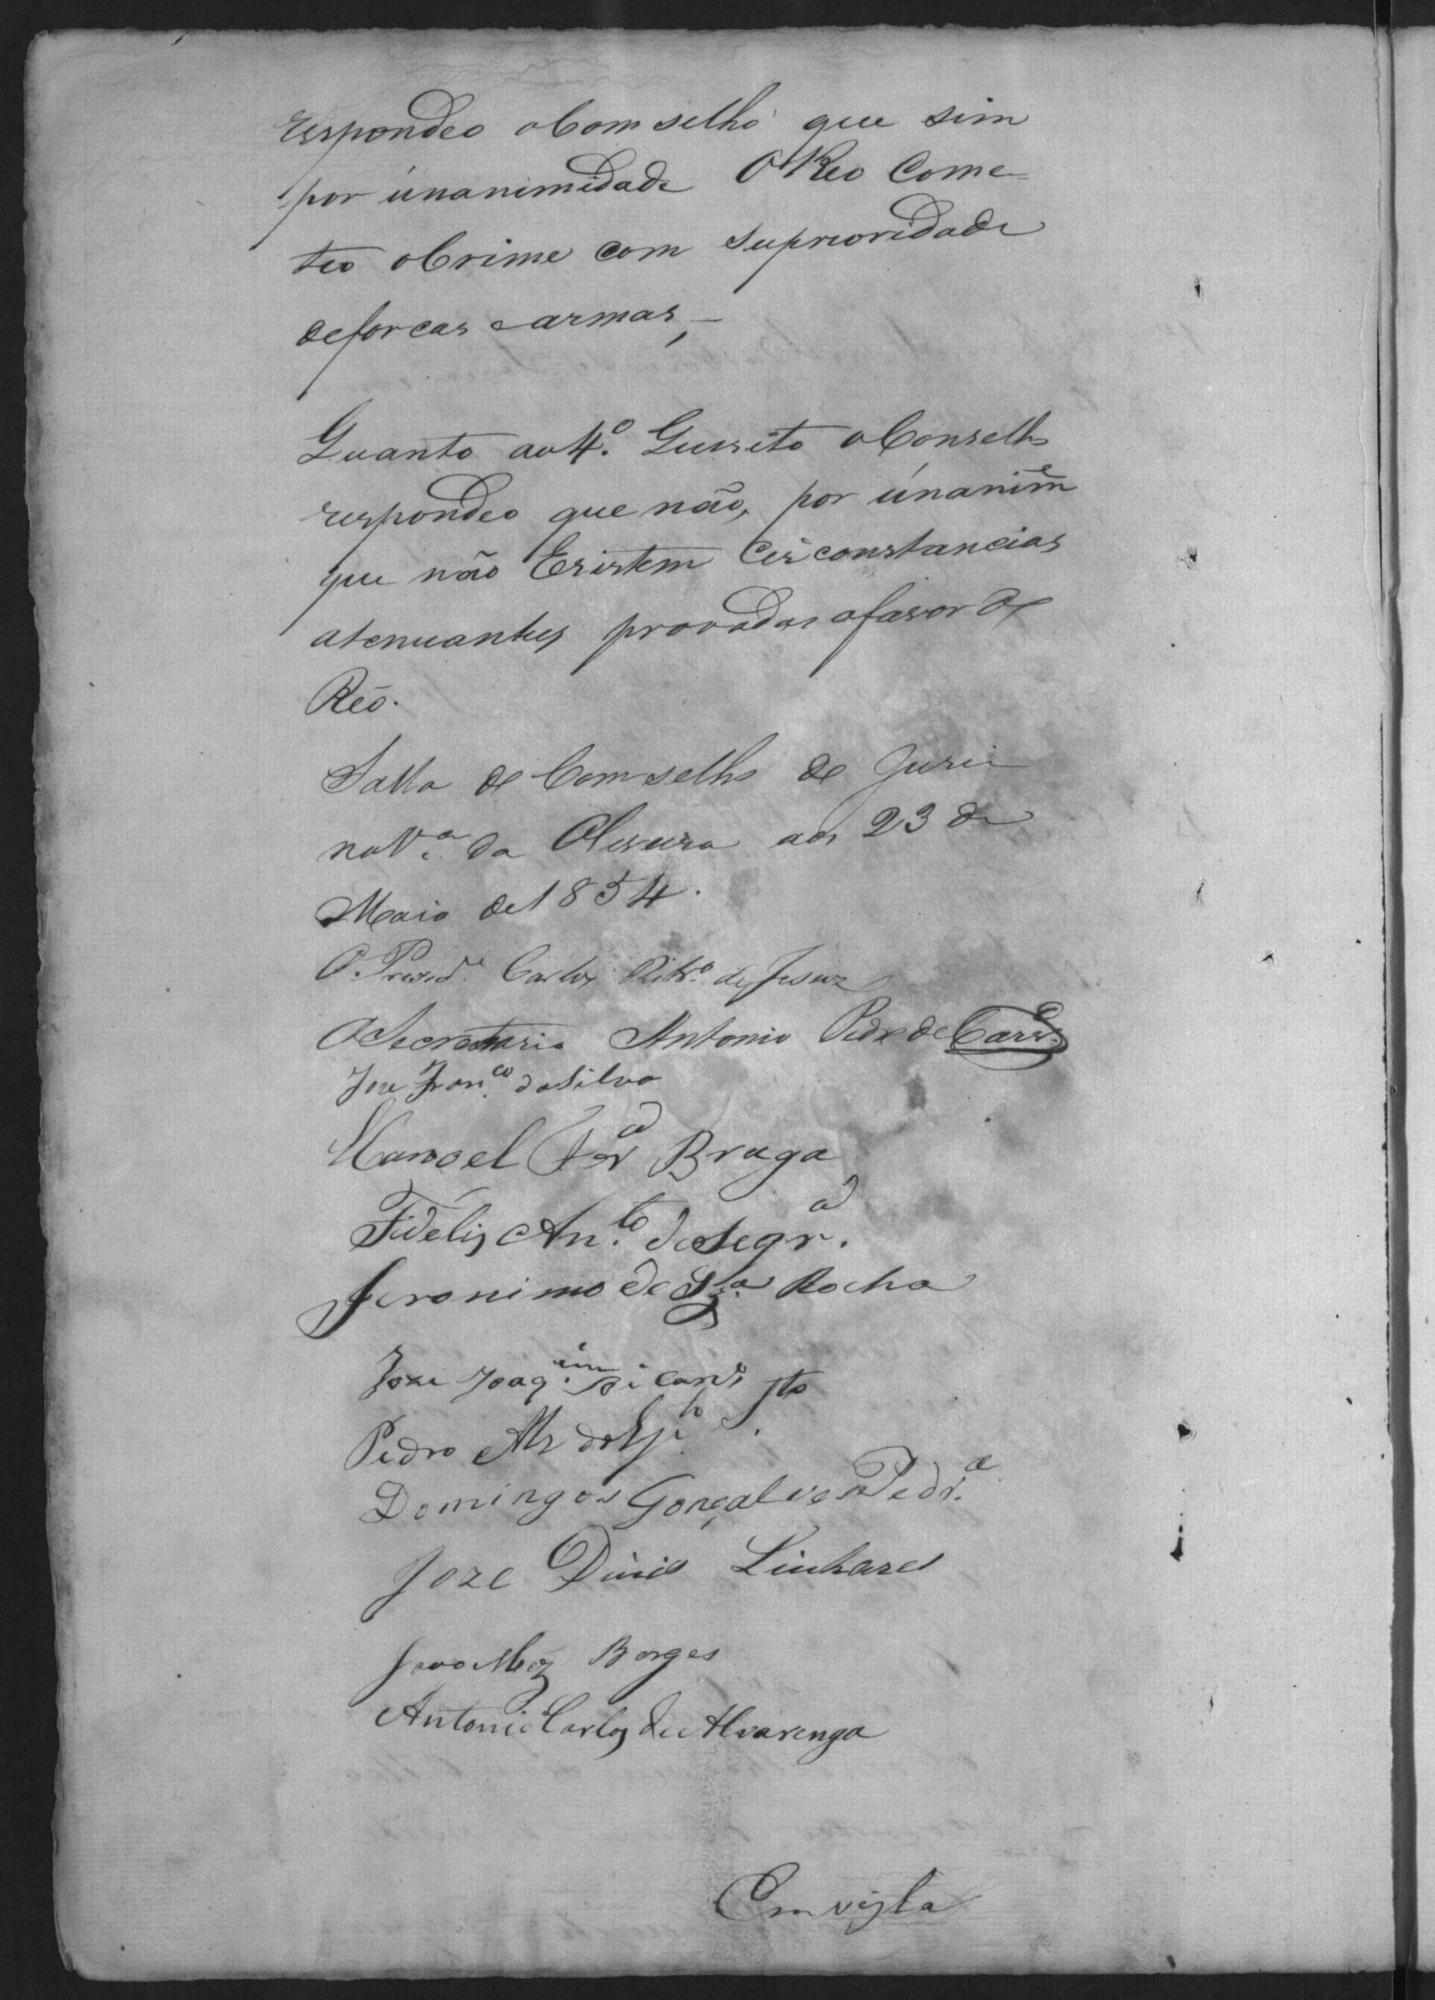 respondeo o Comselho que sim
por únanimidade O Reo Come-
teo o Crime com suprioridade
de forcas e armas, —
Quanto ao 4.º Quesito o Conselho
respondeo que não, por únanim.e
que não Existem Circonstancias
atenuantes provadas a favor do
Reo.
Salla de Comselho de Juri
na V.a da Oliveira aos 23 de
Maio de 1854.
O Presid.e Carlos Ribr.o de Jesus
O Secretario Antonio Pedr de
Joze Fran.co da Silva
Manoel Ferr.a Braga
Fidelis An.to de Segr.a
Jeronimo de Sz.a Rocha
Joze Joaq.im
Pedro Alz do Esp.to S.to
Domingos Gonçalves Pedr.a
Joze Dinis Linhares
Joao Borges
Antonio Carlos de Alvarenga
Em vista